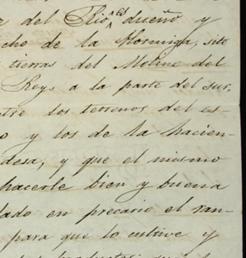 del Rio, es dueño y
cho de la Hormiga, sito
tierras del Molino del
Rey, a la parte del sur,
tre los terrenos del es
o y los de la hacien
desa, y que el mismo
hacerle bien y buena
dado en precario el ran
para que lo cultive y